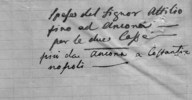 Spesa del Signor Attilio
fino ad Ancona
per le due Casse
poi da Ancona a Costantinopoli
nopoli